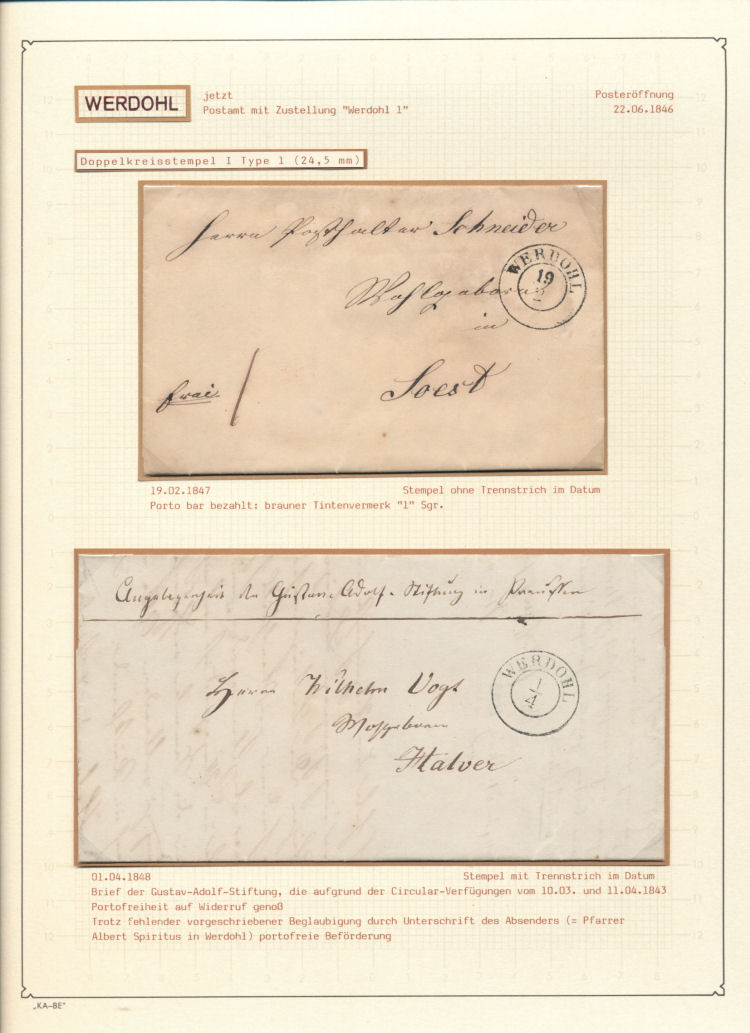 WERDOHL
jetzt
Postamt mit Zustellung "Werdohl 1"
Posteröffnung
22.06.1846
Doppelkreisstempel I Type 1 (24,5 mm)
Herrn Posthalter Schneider
Wohlgeboren
in
Soest
frei
1
WERDOHL
19
2
19.02.1847
Stempel ohne Trennstrich im Datum
Porto bar bezahlt: brauner Tintenvermerk "1" Sgr.
Angelegenheit der Gustav-Adolf-Stiftung in Preussen
Herrn Wilhelm Vogt
Wohlgeboren
Halver
WERDOHL
1
4
01.04.1848
Stempel mit Trennstrich im Datum
Brief der Gustav-Adolf-Stiftung, die aufgrund der Circular-Verfügungen vom 10.03. und 11.04.1843
Portofreiheit auf Widerruf genoß
Trotz fehlender vorgeschriebener Beglaubigung durch Unterschrift des Absenders (= Pfarrer
Albert Spiritus in Werdohl) portofreie Beförderung
„KA-BE"